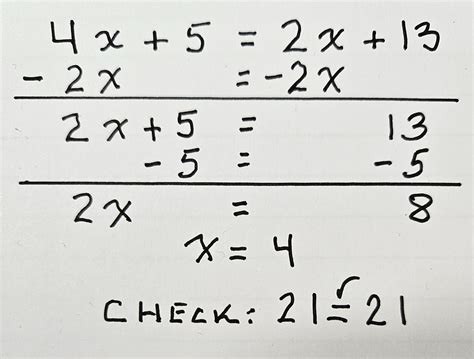 4x + 5 = 2x + 13
- 2x = -2x
2x + 5 = 13
- 5 = - 5
2x = 8
x = 4
CHECK: 21 =✓ 21